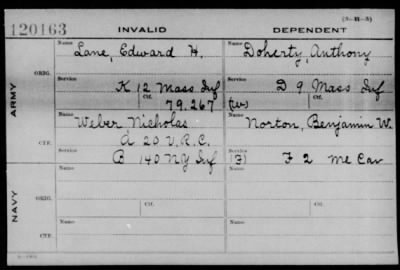 (3-H-5)
120163 INVALID DEPENDENT
Name Lane, Edward H. Name Doherty, Anthony
ORIG.
ARMY
Service K 12 Mass Inf Service D 9 Mass Inf
Ctf. 79.267 Ctf.
Name Weber Nicholas Name Norton, Benjamin W.
A 20 V.R.C.
CTF.
Service B 140 NY Inf Service (F) F 2 Me Cav
Name Name
ORIG.
NAVY
Service Ctf. Service Ctf.
Name Name
CTF.
Service Service